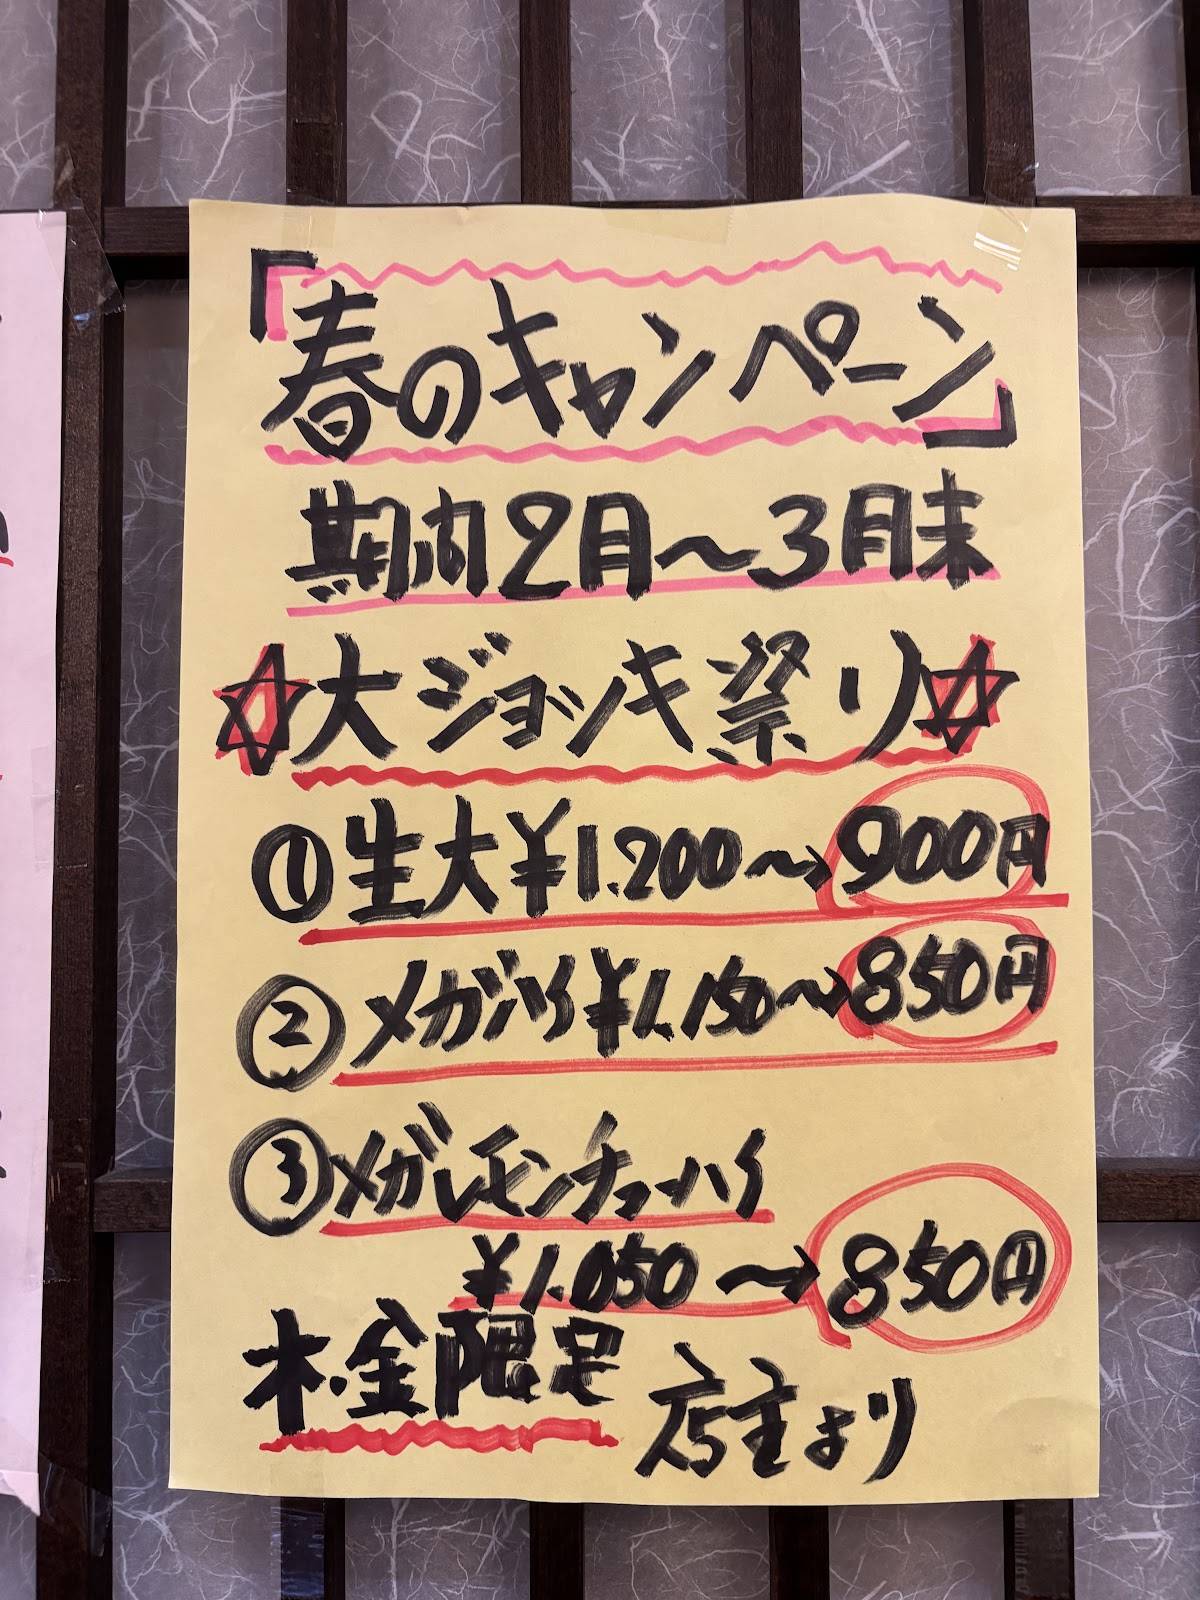 「春のキャンペーン」
期間2月〜3月末
☆大ジョッキ祭り☆
①生大¥1.200〜→900円
②メガジハイ¥1.150〜→850円
③メガレモンチューハイ
¥1.050〜→850円
木.金限定
店主より